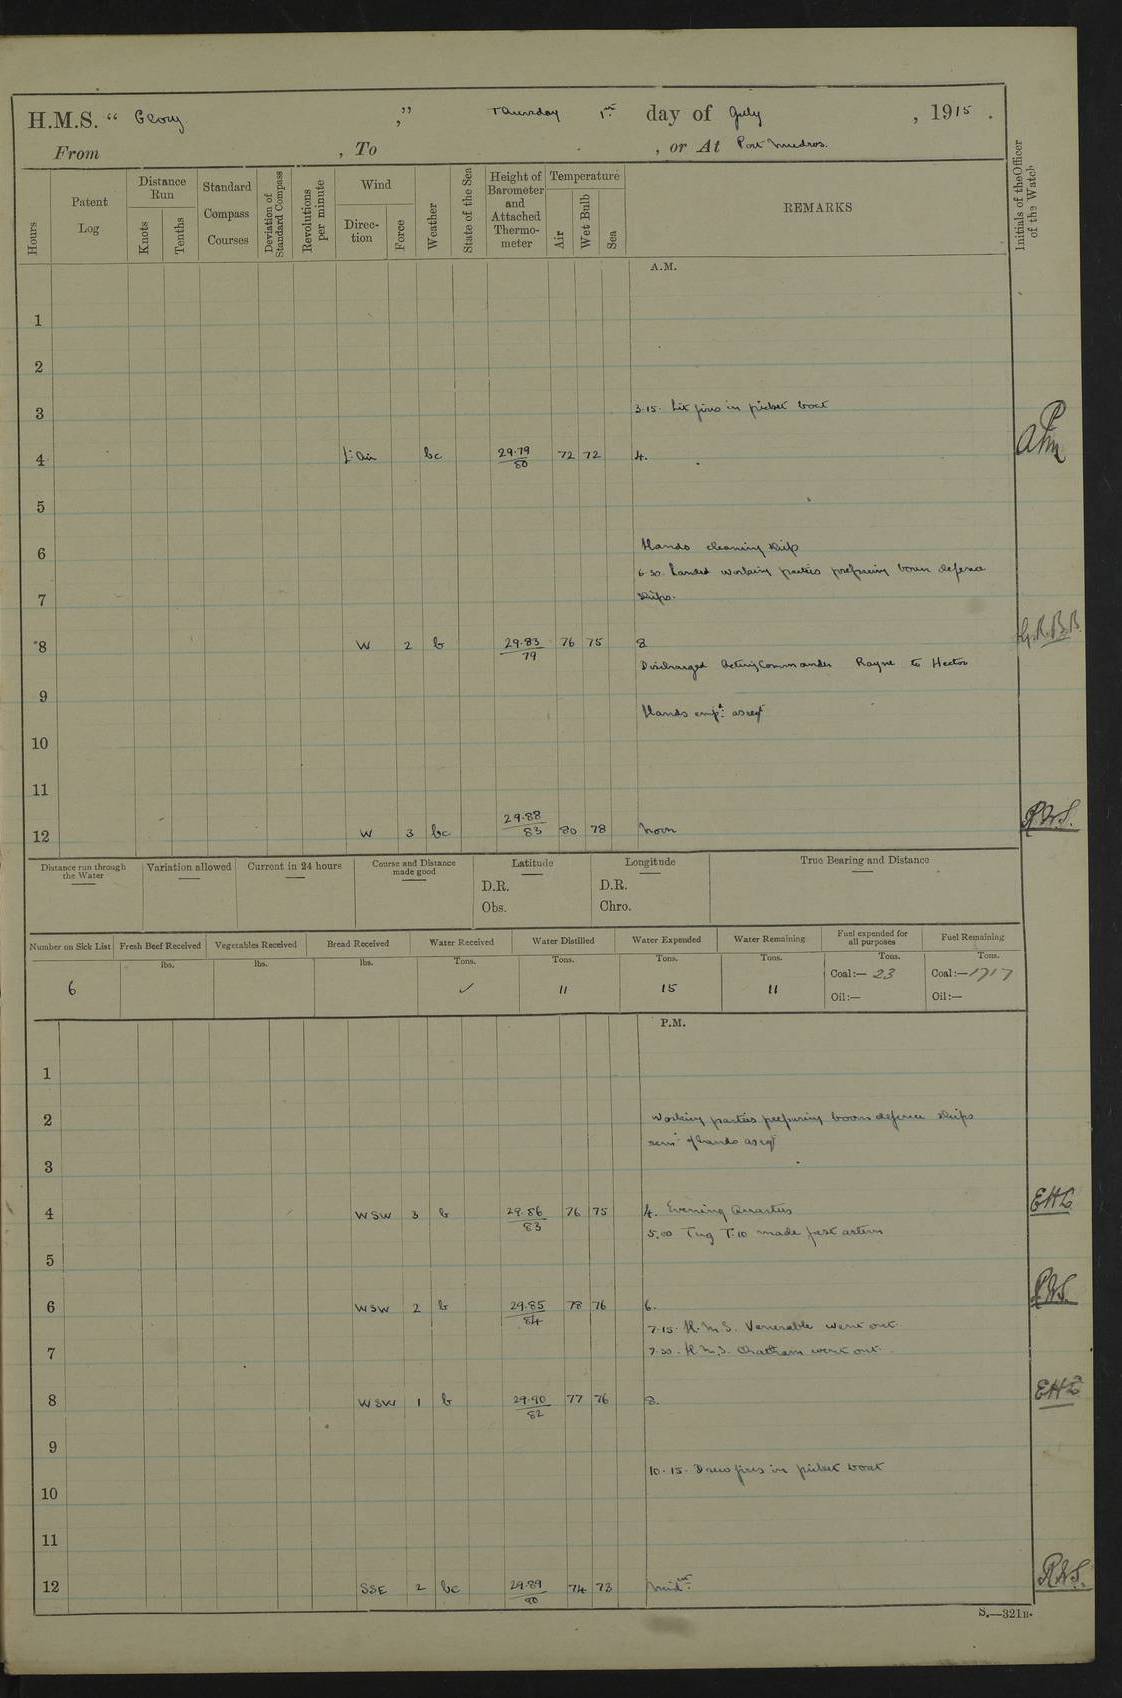 H.M.S. “ Glory ,” Thursday 1st day of July , 1915 .
From , To , or At Port Mudros.
Hours
Patent Log
Distance Run
Knots
Tenths
Standard Compass Courses
Deviation of Standard Compass
Revolutions per minute
Wind
Direc-tion
Force
Weather
State of the Sea
Height of Barometer and Attached Thermo-meter
Temperature
Air
Wet Bulb
Sea
REMARKS
Initials of the Officer of the Watch
A.M.
1
2
3 3.15. Lit fires in picket boat
4 Lt Air bc 29.79/80 72 72 4.
5
6 Hands cleaning ship
6.30. Landed working parties preparing boom defence
7 ships.
8 W 2 b 29.83/79 76 75 8 G.R.B.B.
Discharged Acting Commander Rayne to Hector
9
Hands empd: as reqd
10
11
12 W 3 bc 29.88/83 80 78 Noon R.W.S.
Distance run through the Water
Variation allowed
Current in 24 hours
Course and Distance made good
Latitude
D.R.
Obs.
Longitude
D.R.
Chro.
True Bearing and Distance
Number on Sick List
Fresh Beef Received
Vegetables Received
Bread Received
Water Received
Water Distilled
Water Expended
Water Remaining
Fuel expended for all purposes
Fuel Remaining
lbs. lbs. lbs. Tons. Tons. Tons. Tons. Tons. Tons.
6 ✓ 11 15 11 Coal:— 23 Coal:—1717
Oil:— Oil:—
P.M.
1
2 Working parties preparing boom defence ships
remr of hands as reqd
3
4 WSW 3 b 29.86/83 76 75 4. Evening Quarters
5.00 Tug T.10 made fast astern
5
6 WSW 2 b 29.85/84 78 76 6. R.W.S.
7.15. H.M.S. Venerable went out.
7 7.30. H.M.S. Chatham went out.
8 WSW 1 b 29.90/82 77 76 8.
9
10.15. Drew fires in picket boat
10
11
12 SSE 2 bc 29.89/80 74 73 Midnt: R.W.S.
S.—321B.